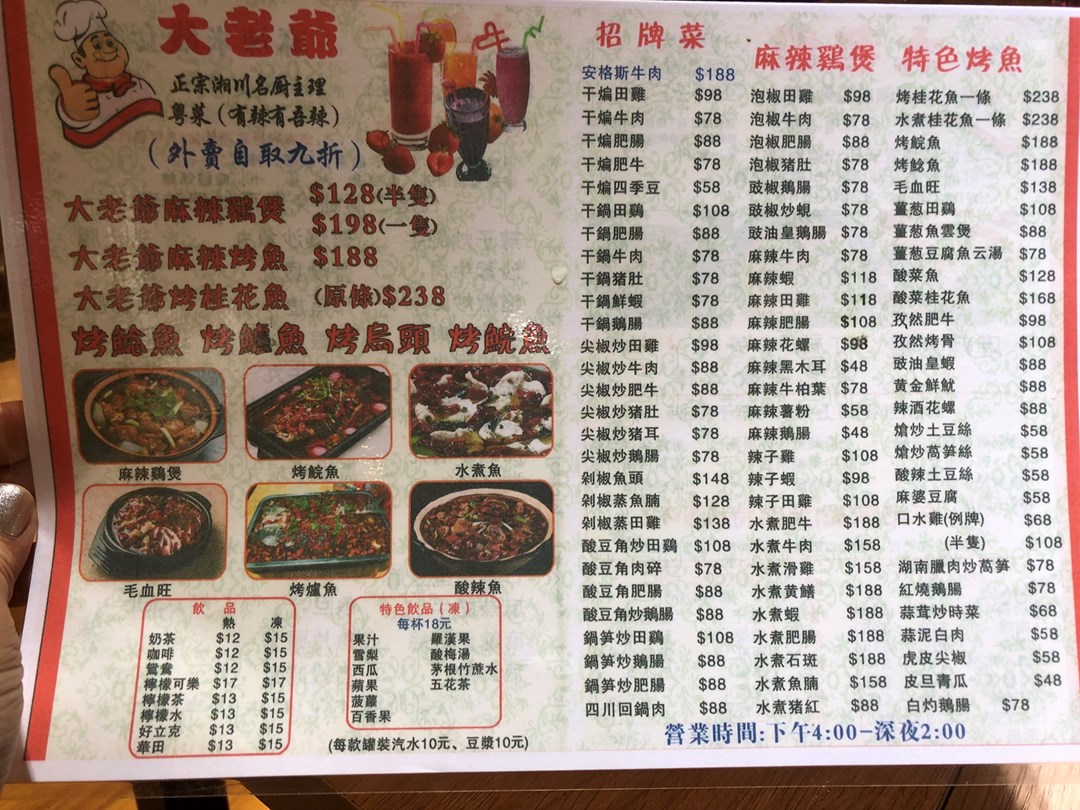 大老爺
正宗湘川名厨主理
粤菜(有辣有吾辣)
(外賣自取九折)
大老爺麻辣鷄煲 $128(半隻)
$198(一隻)
大老爺麻辣烤魚 $188
大老爺烤桂花魚 (原條)$238
烤鯰魚 烤鱸魚 烤烏頭 烤鯇魚
麻辣鷄煲 烤鯇魚 水煮魚
毛血旺 烤爐魚 酸辣魚
飲品
熱 凍
奶茶 $12 $15
咖啡 $12 $15
鴛鴦 $12 $15
檸檬可樂 $17 $17
檸檬茶 $13 $15
檸檬水 $13 $15
好立克 $13 $15
華田 $13 $15
特色飲品(凍)
每杯18元
果汁 羅漢果
雪梨 酸梅湯
西瓜 茅根竹蔗水
蘋果 五花茶
菠蘿
百香果
(每款罐裝汽水10元、豆漿10元)
招牌菜
安格斯牛肉 $188
干煸田雞 $98
干煸牛肉 $78
干煸肥腸 $88
干煸肥牛 $78
干煸四季豆 $58
干鍋田鷄 $108
干鍋肥腸 $88
干鍋牛肉 $78
干鍋猪肚 $78
干鍋鮮蝦 $78
干鍋鵝腸 $88
尖椒炒田雞 $98
尖椒炒牛肉 $88
尖椒炒肥牛 $88
尖椒炒猪肚 $78
尖椒炒猪耳 $78
尖椒炒鵝腸 $78
剁椒魚頭 $148
剁椒蒸魚腩 $128
剁椒蒸田雞 $138
酸豆角炒田鷄 $108
酸豆角肉碎 $78
酸豆角肥腸 $88
酸豆角炒鵝腸 $88
鍋笋炒田鷄 $108
鍋笋炒鵝腸 $88
鍋笋炒肥腸 $88
四川回鍋肉 $88
麻辣鷄煲
泡椒田雞 $98
泡椒牛肉 $78
泡椒肥腸 $88
泡椒猪肚 $78
豉椒鵝腸 $78
豉椒炒蜆 $78
豉油皇鵝腸 $78
麻辣牛肉 $78
麻辣蝦 $118
麻辣田雞 $118
麻辣肥腸 $108
麻辣花螺 $98
麻辣黑木耳 $48
麻辣牛柏葉 $78
麻辣薯粉 $58
麻辣鵝腸 $48
辣子雞 $108
辣子蝦 $98
辣子田雞 $108
水煮肥牛 $188
水煮牛肉 $158
水煮滑雞 $158
水煮黄鱔 $188
水煮蝦 $188
水煮肥腸 $188
水煮石斑 $188
水煮魚腩 $158
水煮猪紅 $88
特色烤魚
烤桂花魚一條 $238
水煮桂花魚一條 $238
烤鯇魚 $188
烤鯰魚 $188
毛血旺 $138
薑葱田鷄 $108
薑葱魚雲煲 $88
薑葱豆腐魚云湯 $78
酸菜魚 $128
酸菜桂花魚 $168
孜然肥牛 $98
孜然烤骨 $108
豉油皇蝦 $88
黄金鮮魷 $88
辣酒花螺 $88
熗炒土豆絲 $58
熗炒萵笋絲 $58
酸辣土豆絲 $58
麻婆豆腐 $58
口水雞(例牌) $68
(半隻) $108
湖南臘肉炒萵笋 $78
紅燒鵝腸 $78
蒜茸炒時菜 $68
蒜泥白肉 $58
虎皮尖椒 $58
皮旦青瓜 $48
白灼鵝腸 $78
營業時間:下午4:00-深夜2:00